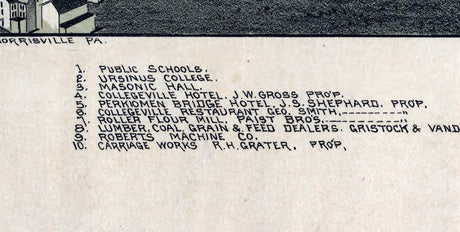 ORRISVILLE PA.
1. PUBLIC SCHOOLS.
2. URSINUS COLLEGE.
3. MASONIC HALL.
4. COLLEGEVILLE HOTEL, J.W. GROSS PROP.
5. PERKIOMEN BRIDGE HOTEL, J.S. SHEPHARD, PROP.
6. COLLEGEVILLE RESTAURANT GEO. SMITH, ---------"
7. ROLLER FLOUR MILL, PAIST BROS. ---------"
8. LUMBER, COAL, GRAIN & FEED DEALERS. GRISTOCK & VAND
9. ROBERTS MACHINE CO.
10. CARRIAGE WORKS R.H. GRATER, PROP,